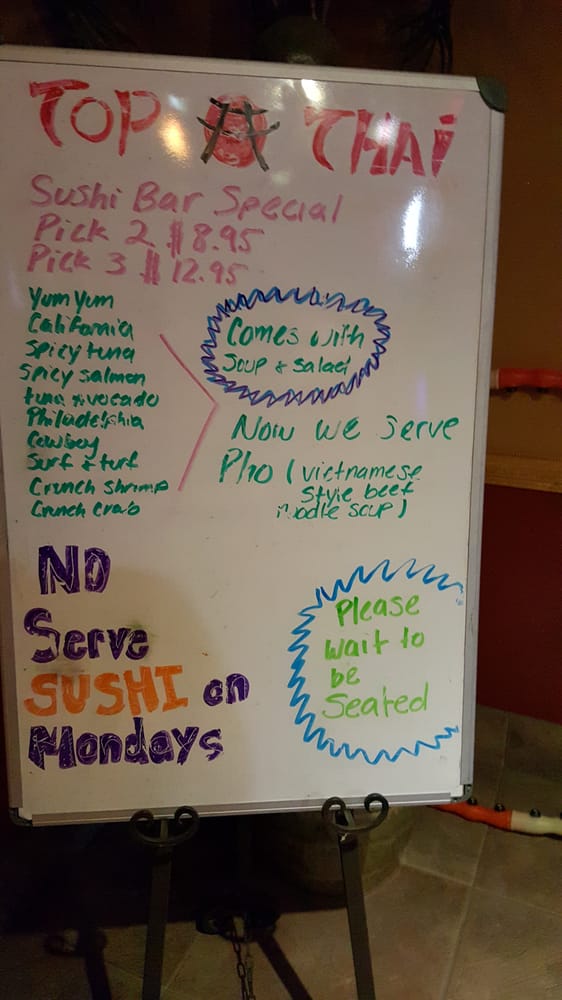 TOP THAi
Sushi Bar Special
Pick 2 $8.95
Pick 3 $12.95
Yum Yum
California
Spicy tuna
Spicy salmon
tuna avocado
Philadelphia
Cowboy
Surf & turf
Crunch shrimp
Crunch crab
Comes with
Soup & salad
Now we serve
Pho (vietnamese
style beef
noodle soup)
NO
Serve
SUSHI on
Mondays
Please
wait to
be
Seated